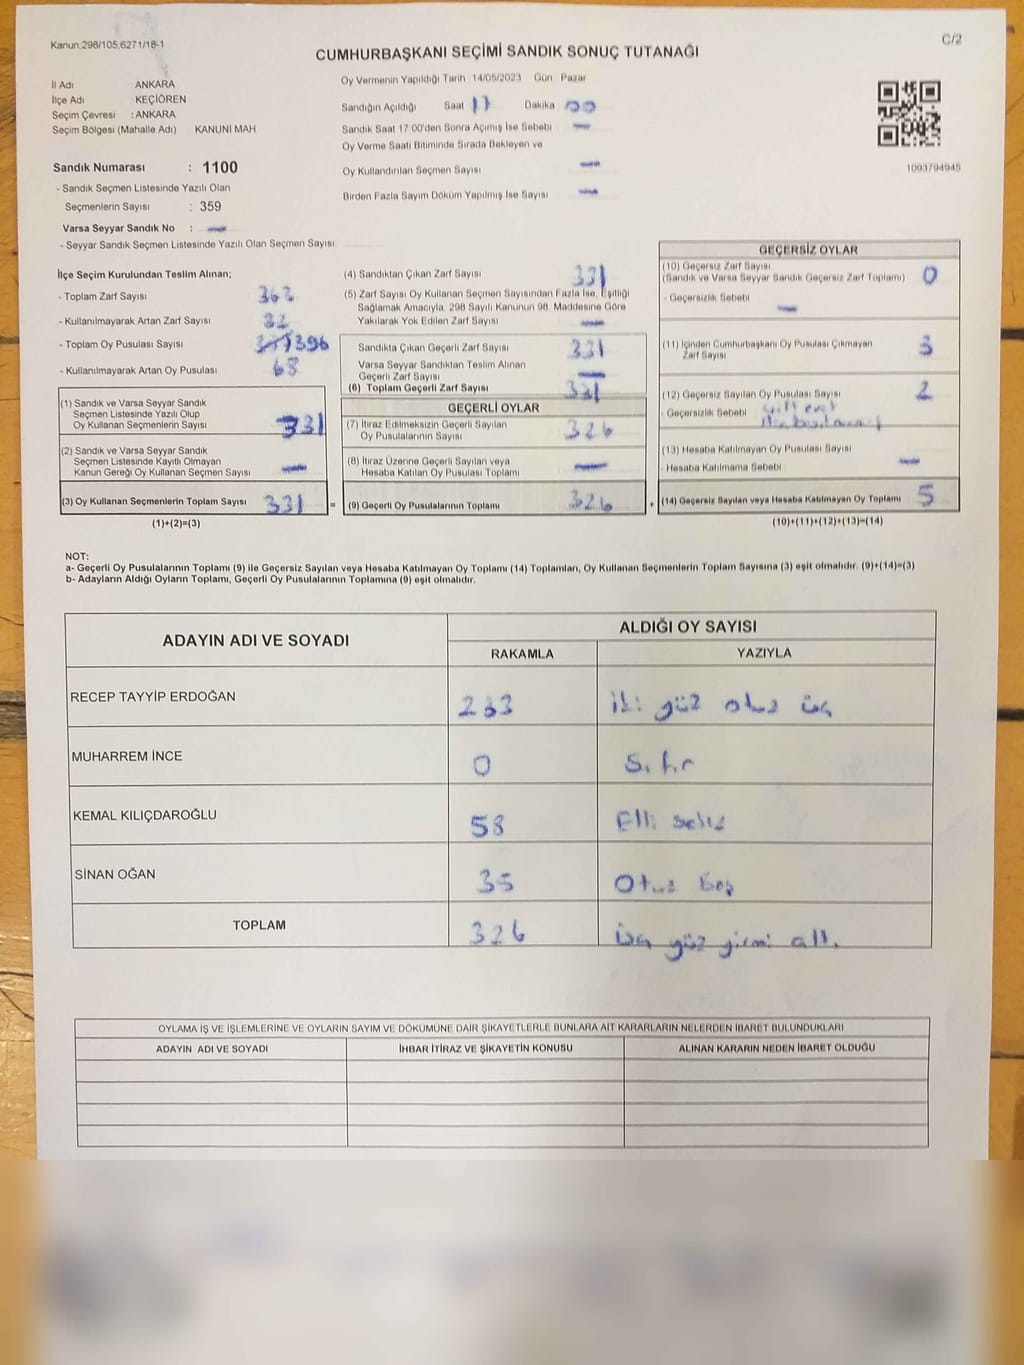 Kanun;298/105,6271/18-1
C/2
CUMHURBAŞKANI SEÇİMİ SANDIK SONUÇ TUTANAĞI
İl Adı ANKARA
İlçe Adı : KEÇİÖREN
Seçim Çevresi : ANKARA
Seçim Bölgesi (Mahalle Adı) KANUNİ MAH
Sandık Numarası : 1100
- Sandık Seçmen Listesinde Yazılı Olan
Seçmenlerin Sayısı : 359
Varsa Seyyar Sandık No : —
- Seyyar Sandık Seçmen Listesinde Yazılı Olan Seçmen Sayısı
Oy Vermenin Yapıldığı Tarih 14/05/2023 Gün Pazar
Sandığın Açıldığı Saat 17 Dakika 00
Sandık Saat 17:00'den Sonra Açılmış İse Sebebi —
Oy Verme Saati Bitiminde Sırada Bekleyen ve
Oy Kullandırılan Seçmen Sayısı —
Birden Fazla Sayım Döküm Yapılmış İse Sayısı —
1093794945
İlçe Seçim Kurulundan Teslim Alınan;
- Toplam Zarf Sayısı 362
- Kullanılmayarak Artan Zarf Sayısı 32
- Toplam Oy Pusulası Sayısı 396
- Kullanılmayarak Artan Oy Pusulası 68
(1) Sandık ve Varsa Seyyar Sandık
Seçmen Listesinde Yazılı Olup
Oy Kullanan Seçmenlerin Sayısı 331
(2) Sandık ve Varsa Seyyar Sandık
Seçmen Listesinde Kayıtlı Olmayan
Kanun Gereği Oy Kullanan Seçmen Sayısı —
(3) Oy Kullanan Seçmenlerin Toplam Sayısı 331
(1)+(2)=(3)
(4) Sandıktan Çıkan Zarf Sayısı 331
(5) Zarf Sayısı Oy Kullanan Seçmen Sayısından Fazla İse, Eşitliği
Sağlamak Amacıyla, 298 Sayılı Kanunun 98. Maddesine Göre
Yakılarak Yok Edilen Zarf Sayısı —
Sandıkta Çıkan Geçerli Zarf Sayısı 331
Varsa Seyyar Sandıktan Teslim Alınan
Geçerli Zarf Sayısı —
(6) Toplam Geçerli Zarf Sayısı 331
GEÇERLİ OYLAR
(7) İtiraz Edilmeksizin Geçerli Sayılan
Oy Pusulalarının Sayısı 326
(8) İtiraz Üzerine Geçerli Sayılan veya
Hesaba Katılan Oy Pusulası Toplamı —
= (9) Geçerli Oy Pusulalarının Toplamı 326 +
GEÇERSİZ OYLAR
(10) Geçersiz Zarf Sayısı
(Sandık ve Varsa Seyyar Sandık Geçersiz Zarf Toplamı) 0
- Geçersizlik Sebebi —
(11) İçinden Cumhurbaşkanı Oy Pusulası Çıkmayan
Zarf Sayısı 3
(12) Geçersiz Sayılan Oy Pusulası Sayısı 2
- Geçersizlik Sebebi
(13) Hesaba Katılmayan Oy Pusulası Sayısı —
- Hesaba Katılmama Sebebi
(14) Geçersiz Sayılan veya Hesaba Katılmayan Oy Toplamı 5
(10)+(11)+(12)+(13)=(14)
NOT:
a- Geçerli Oy Pusulalarının Toplamı (9) ile Geçersiz Sayılan veya Hesaba Katılmayan Oy Toplamı (14) Toplamları, Oy Kullanan Seçmenlerin Toplam Sayısına (3) eşit olmalıdır. (9)+(14)=(3)
b- Adayların Aldığı Oyların Toplamı, Geçerli Oy Pusulalarının Toplamına (9) eşit olmalıdır.
ADAYIN ADI VE SOYADI ALDIĞI OY SAYISI
RAKAMLA YAZIYLA
RECEP TAYYİP ERDOĞAN 233 iki yüz otuz üç
MUHARREM İNCE 0 Sıfır
KEMAL KILIÇDAROĞLU 58 Elli sekiz
SİNAN OĞAN 35 Otuz beş
TOPLAM 326 üç yüz yirmi altı
OYLAMA İŞ VE İŞLEMLERİNE VE OYLARIN SAYIM VE DÖKÜMÜNE DAİR ŞİKAYETLERLE BUNLARA AİT KARARLARIN NELERDEN İBARET BULUNDUKLARI
ADAYIN ADI VE SOYADI İHBAR İTİRAZ VE ŞİKAYETİN KONUSU ALINAN KARARIN NEDEN İBARET OLDUĞU